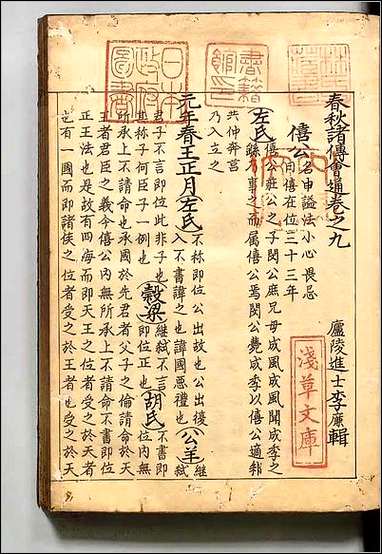 春秋諸傳會通卷之九
廬陵進士李廉輯
僖公
名申諡法小心畏忌
曰僖在位三十三年
左氏
僖公莊公之子閔公庶兄母成風成風聞成季之
繇乃事之而属僖公焉閔公薨成季以僖公適邾
共仲奔莒
乃入立之
元年春王正月
左氏
不稱即位公出故也公出復
入不書諱之也諱國惡禮也
公羊
繼弑
君子不言即位此非子也
其稱子何臣子一例也
穀梁
繼弑不言
即位正也
胡氏
不書即
位内無
所承上不請命也承國於先君者父子之倫請命於天
王者君臣之義今僖公内無所承上不請命不書即位
正王法也是故有四海而即天王之位者受之於天者
也有一國而即諸侯之位者受之於王者也受之於天
日本政府圖書
書籍館印
淺草文庫